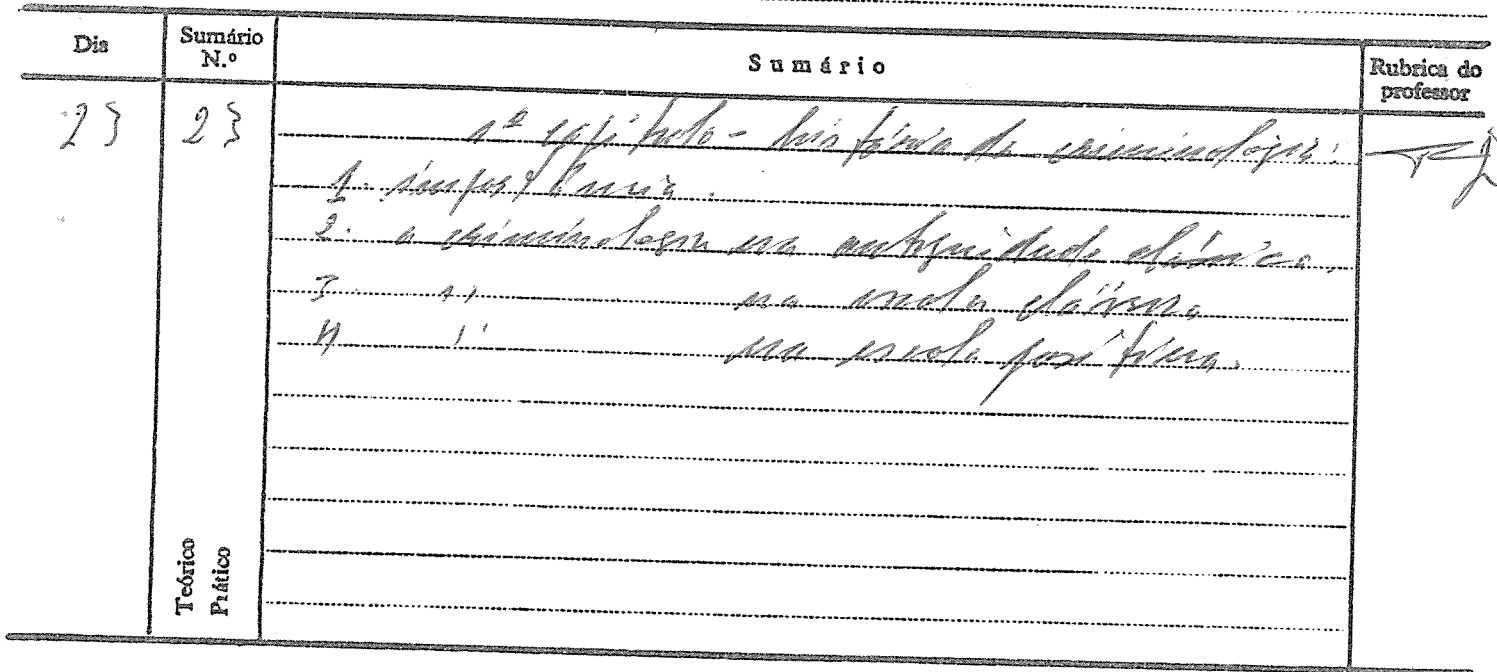 Dia
Sumário N.º
Sumário
Rubrica do professor
23
23
1º capítulo - história da criminologia:
1. importância.
2. a criminologia na antiguidade clássica,
3. " na escola clássica
4 " na escola positiva.
Teórico
Prático